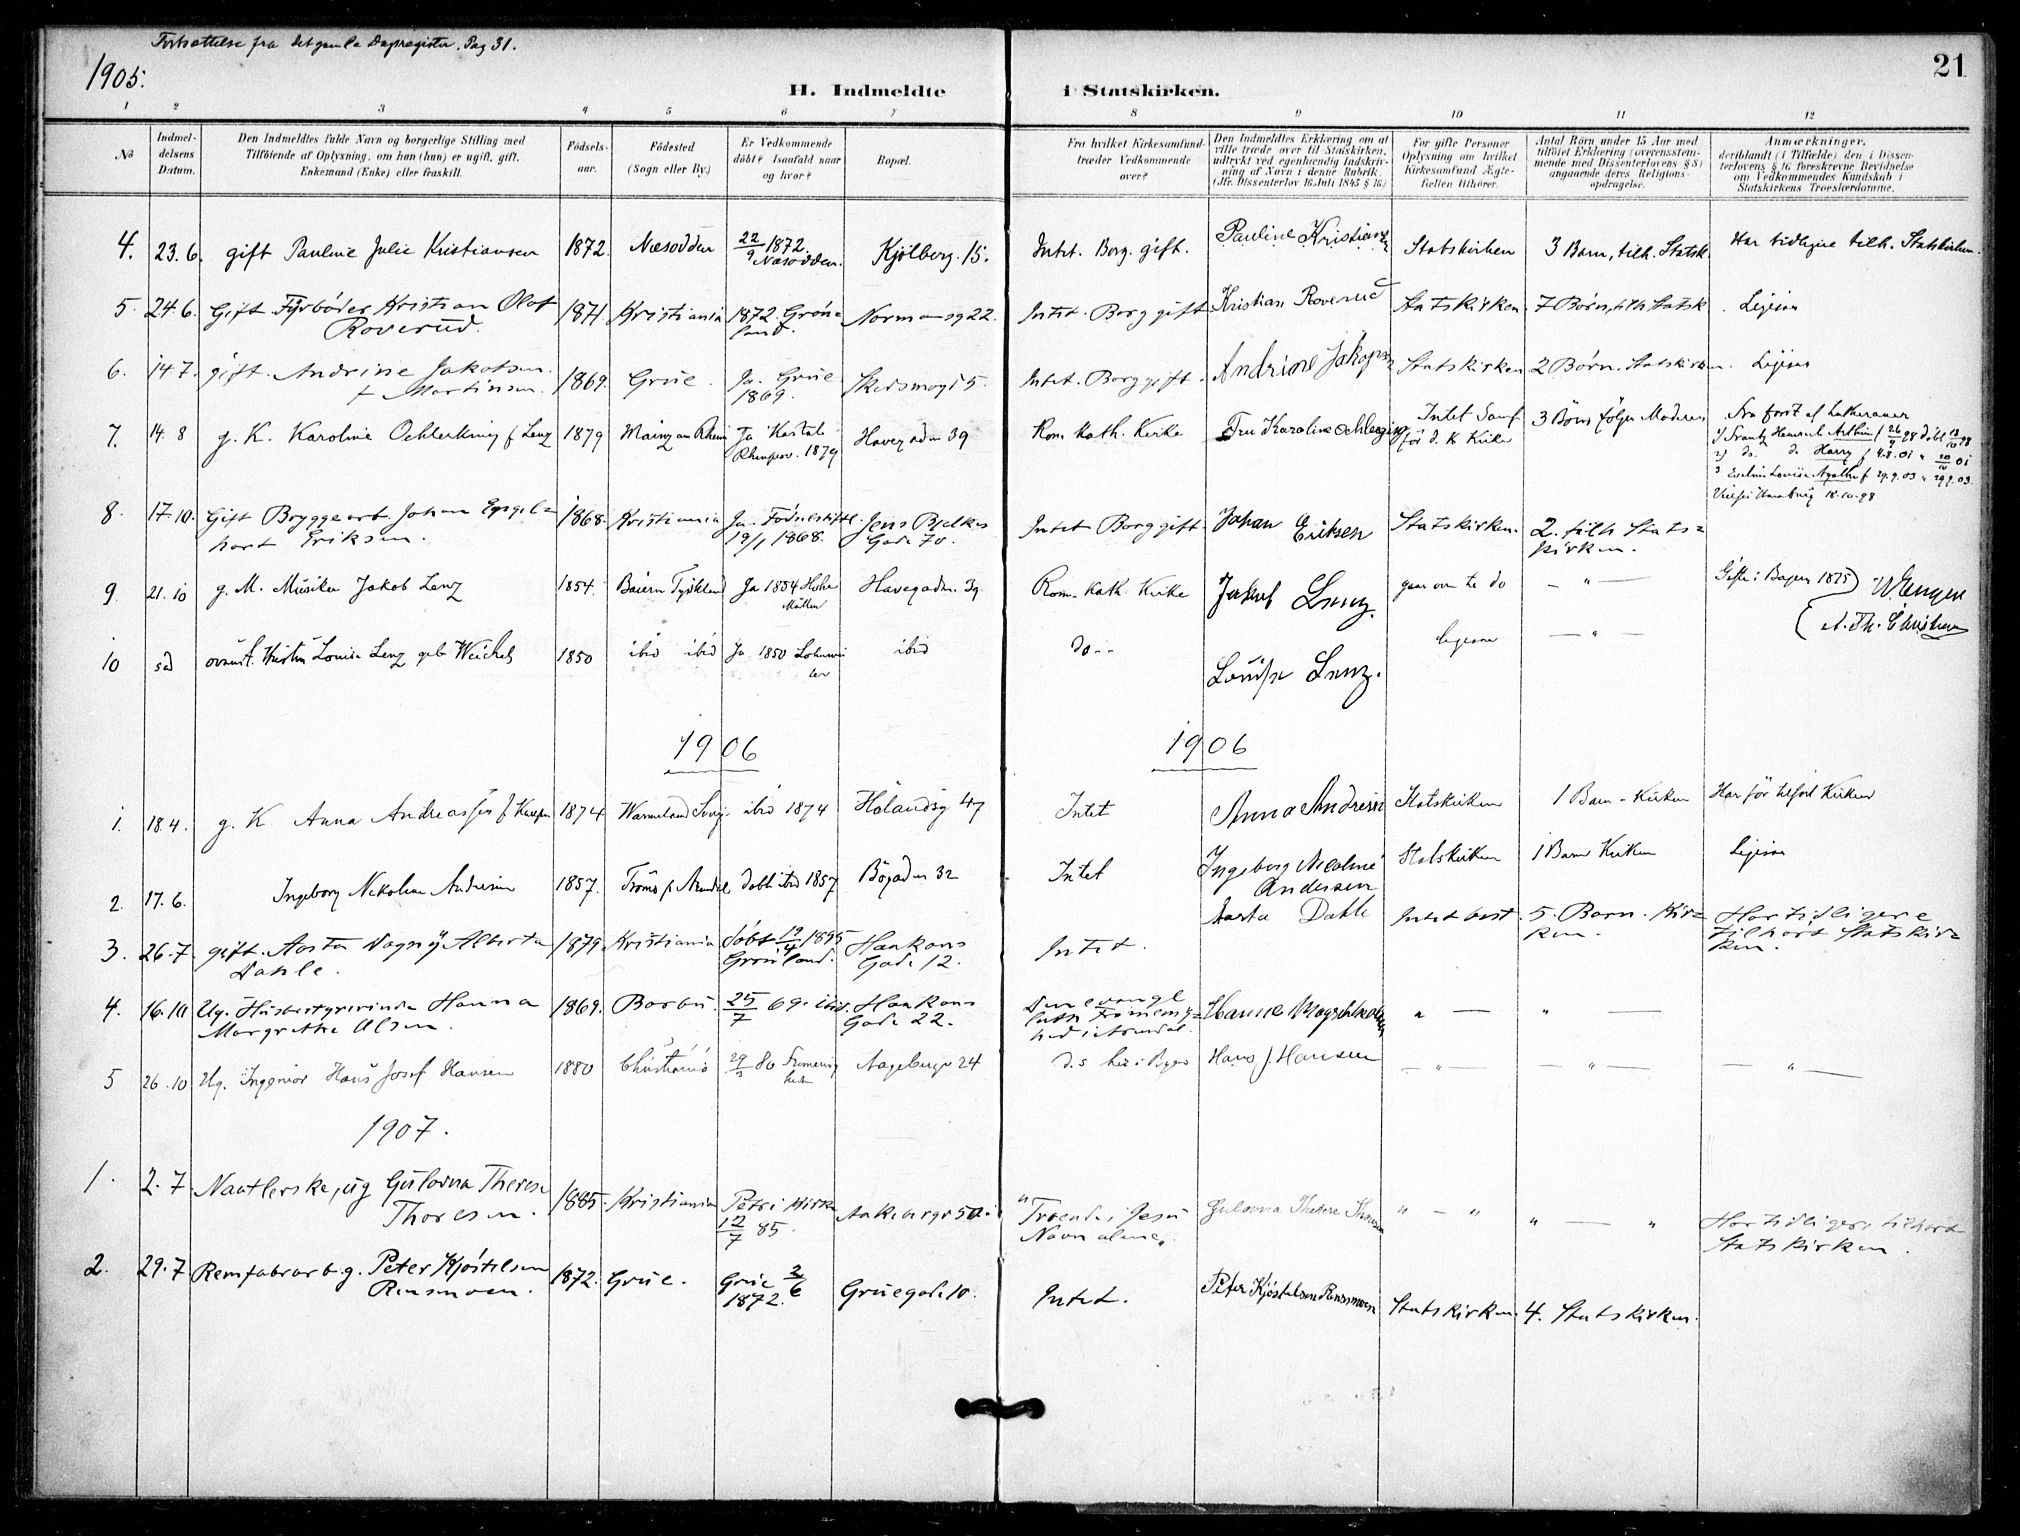 Fortsættelse fra det gamle Dagsregister. Pag 31.
1905.
21
H. Indmeldte i Statskirken.
1 2 3 4 5 6 7 8 9 10 11 12
No
Indmeldelsens Datum.
Den Indmeldtes fulde Navn og borgerlige Stilling med Tilföiende af Oplysning, om han (hun) er ugift, gift, Enkemand (Enke) eller fraskilt.
Födselsaar.
Födested (Sogn eller By.)
Er Vedkommende döbt? Isaafald naar og hvor?
Bopæl.
Fra hvilket Kirkesamfund træder Vedkommende over?
Den Indmeldtes Erklæring om at ville træde over til Statskirken, udtrykt ved egenhændig Indskrivning af Navn i denne Rubrik. (Jfr. Dissenterlov 16 Juli 1845 § 16)
For gifte Personer Oplysning om hvilket Kirkesamfund Ægtefællen tilhörer.
Antal Börn under 15 Aar med tilföiet Erklæring (overensstemmende med Dissenterlovens § 8) angaaende deres Religionsopdragelse.
Anmærkninger, deriblandt (i Tilfælde) den i Dissenterlovens § 16 foreskrevne Bevidnelse om Vedkommendes Kundskab i Statskirkens Troeslærdomme.
4. 23.6. gift Pauline Julie Kristiansen 1872. Næsodden 22/9 1872. Næsodden. Kjölberg. 15. Intet. Borg. gift. Pauline Kristiansen Statskirken 3 Barn, tilh. Statsk. Har tidligere tilh. Statskirken.
5. 24.6. Gift Fyrböder Kristian Olaf Roverud. 1871. Kristiania 1872. Grönland. Normansg 22. Intet. Borg gift Kristian Roverud Statskirken. 7 Börn, tilh Statsk. Ligesaa
6. 14.7. gift. Andrine Jakobsen f Martinsen. 1869. Grue. Ja. Grue 1869. Skedsmogt 5. Intet. Borg gift. Andrine Jakopsen Statskirken 2 Börn. Statskirken. Ligesaa
7. 14.8 g. K. Karoline f Lenz 1879 Mainz am Rhein Ja Kastel 1879 Havegaden 39 Rom. Kath. Kirke Fru Karoline Intet Samf för d. K Kirke 3 Börn fölger Moderen
8. 17.10. Gift Bryggearb. Johan Engelhart Eriksen. 1868. Kristiania Ja. Födselsstift. 19/1 1868. Jens Bjelkes Gade 70. Intet Borg gift Johan Eriksen Statskirken. 2. tilh Statskirken.
9. 21.10 g. M. Musiker Jakob Lenz 1854. Baiern Tyskland Ja 1854 Havegaden. 39 Rom. Kath. Kirke Jakob Lenz. gaar over til do — " — Gifte i Bayern 1875
10 s.d. Louise Lenz 1850 ibid ibid Ja 1850 ibid do -- Louise Lenz. ligesaa — " —
1906 1906
1. 18.4. g. K Anna 1874 Warmeland Sverig ibid 1874 Hølandsg 47 Intet Anna Statskirken 1 Barn - Kirken Har för tilhört Kirken
2. 17.6. Ingeborg Nikoline Andersen 1857. Tromö p. Arendal döbt ibid 1857 Bögaden 32 Intet Ingeborg Nicoline Andersen Statskirken 1 Barn Kirken Ligesaa
3. 26.7. gift. Aasta Dagny Alberta Dahle. 1879. Kristiania döbt 19/4 1895 Grönland. Haakons Gade 12. Intet. Aasta Dahle Intet best. 5. Barn. Kirken. Har tidligere tilhört Statskirken.
4. 16.10 Ug. Husbestyrerinde Hanna Margrethe Olsen. 1869. Barbu 25/7 69. ibid. Haakons Gade 22. Den evangl luth Frimenighed i Arendal. " — " —
5 26.10 Ug. Ingeniör Hans Josef Hansen 1880 Christiania 80 Frimenigheden 24 Hans J. Hansen — " — — " — — " —
1907.
1. 2.7. ug Gulovna Therese Thoresen. 1885. Kristiania Petri Kirke 12/7 85. Aakebergv 50. "Troende i Jesu Navn alene". Gulovna Therese Thoresen " — " " — " Har tidligere tilhört Statskirken.
2. 29.7 g. Peter Kjöstelsen Rensmoen. 1872. Grue. Grue 2/6 1872. Gruegade 10. Intet. Peter Kjöstelsen Rensmoen Statskirken. 4. Statskirken.